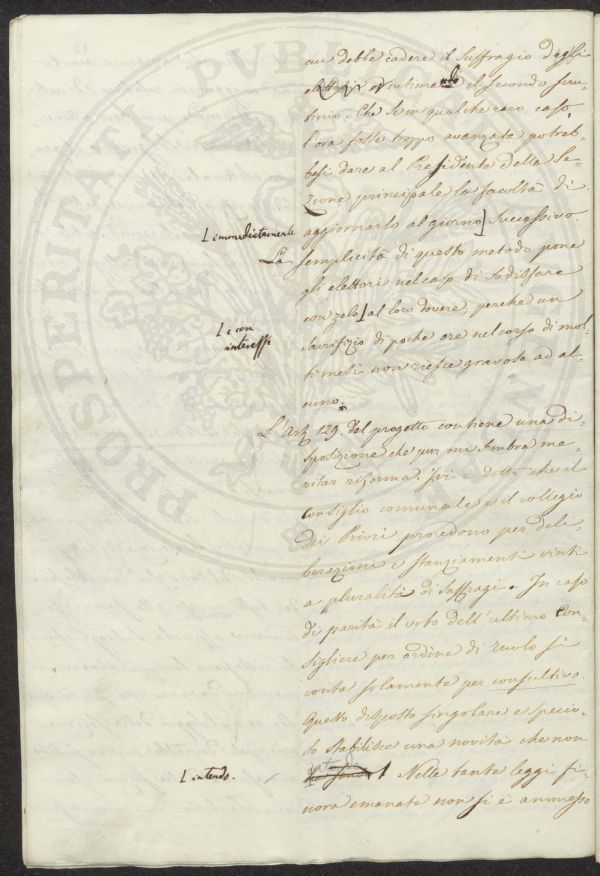 cui debbe cadere il suffragio degli
elettori ultimando il secondo scru-
tinio. Che se in qualche raro caso
l'ora fosse troppo avanzata potreb-
besi dare al Presidente della Se-
zione principale la facoltà di
aggiornarlo al giorno⌋ successivo.
⌊immediatamente
La semplicità di questo metodo pone
gli elettori nel caso di sodisfare
con zelo⌋ al loro dovere, perchè un
⌊e con
interesse
sacrifizio di poche ore nel corso di mol-
ti mesi non riesce gravoso ad al-
cuno.
L'Art. 129. del progetto contiene una di-
sposizione che pur mi sembra me-
ritar riforma. Ivi è detto che il
consiglio comunale e il collegio
dei Priori procedono per deli-
berazioni e stanziamenti vinti
a pluralità di suffragi. In caso
di parità il voto dell'ultimo Con-
sigliere per ordine di ruolo si
conta solamente per consultivo.
Questo disposto singolare e specio-
so stabilisce una novità che non
⌊intendo.
Nelle tante leggi fi-
nora emanate non si è ammesso
PROSPERITATI PVBLICAE